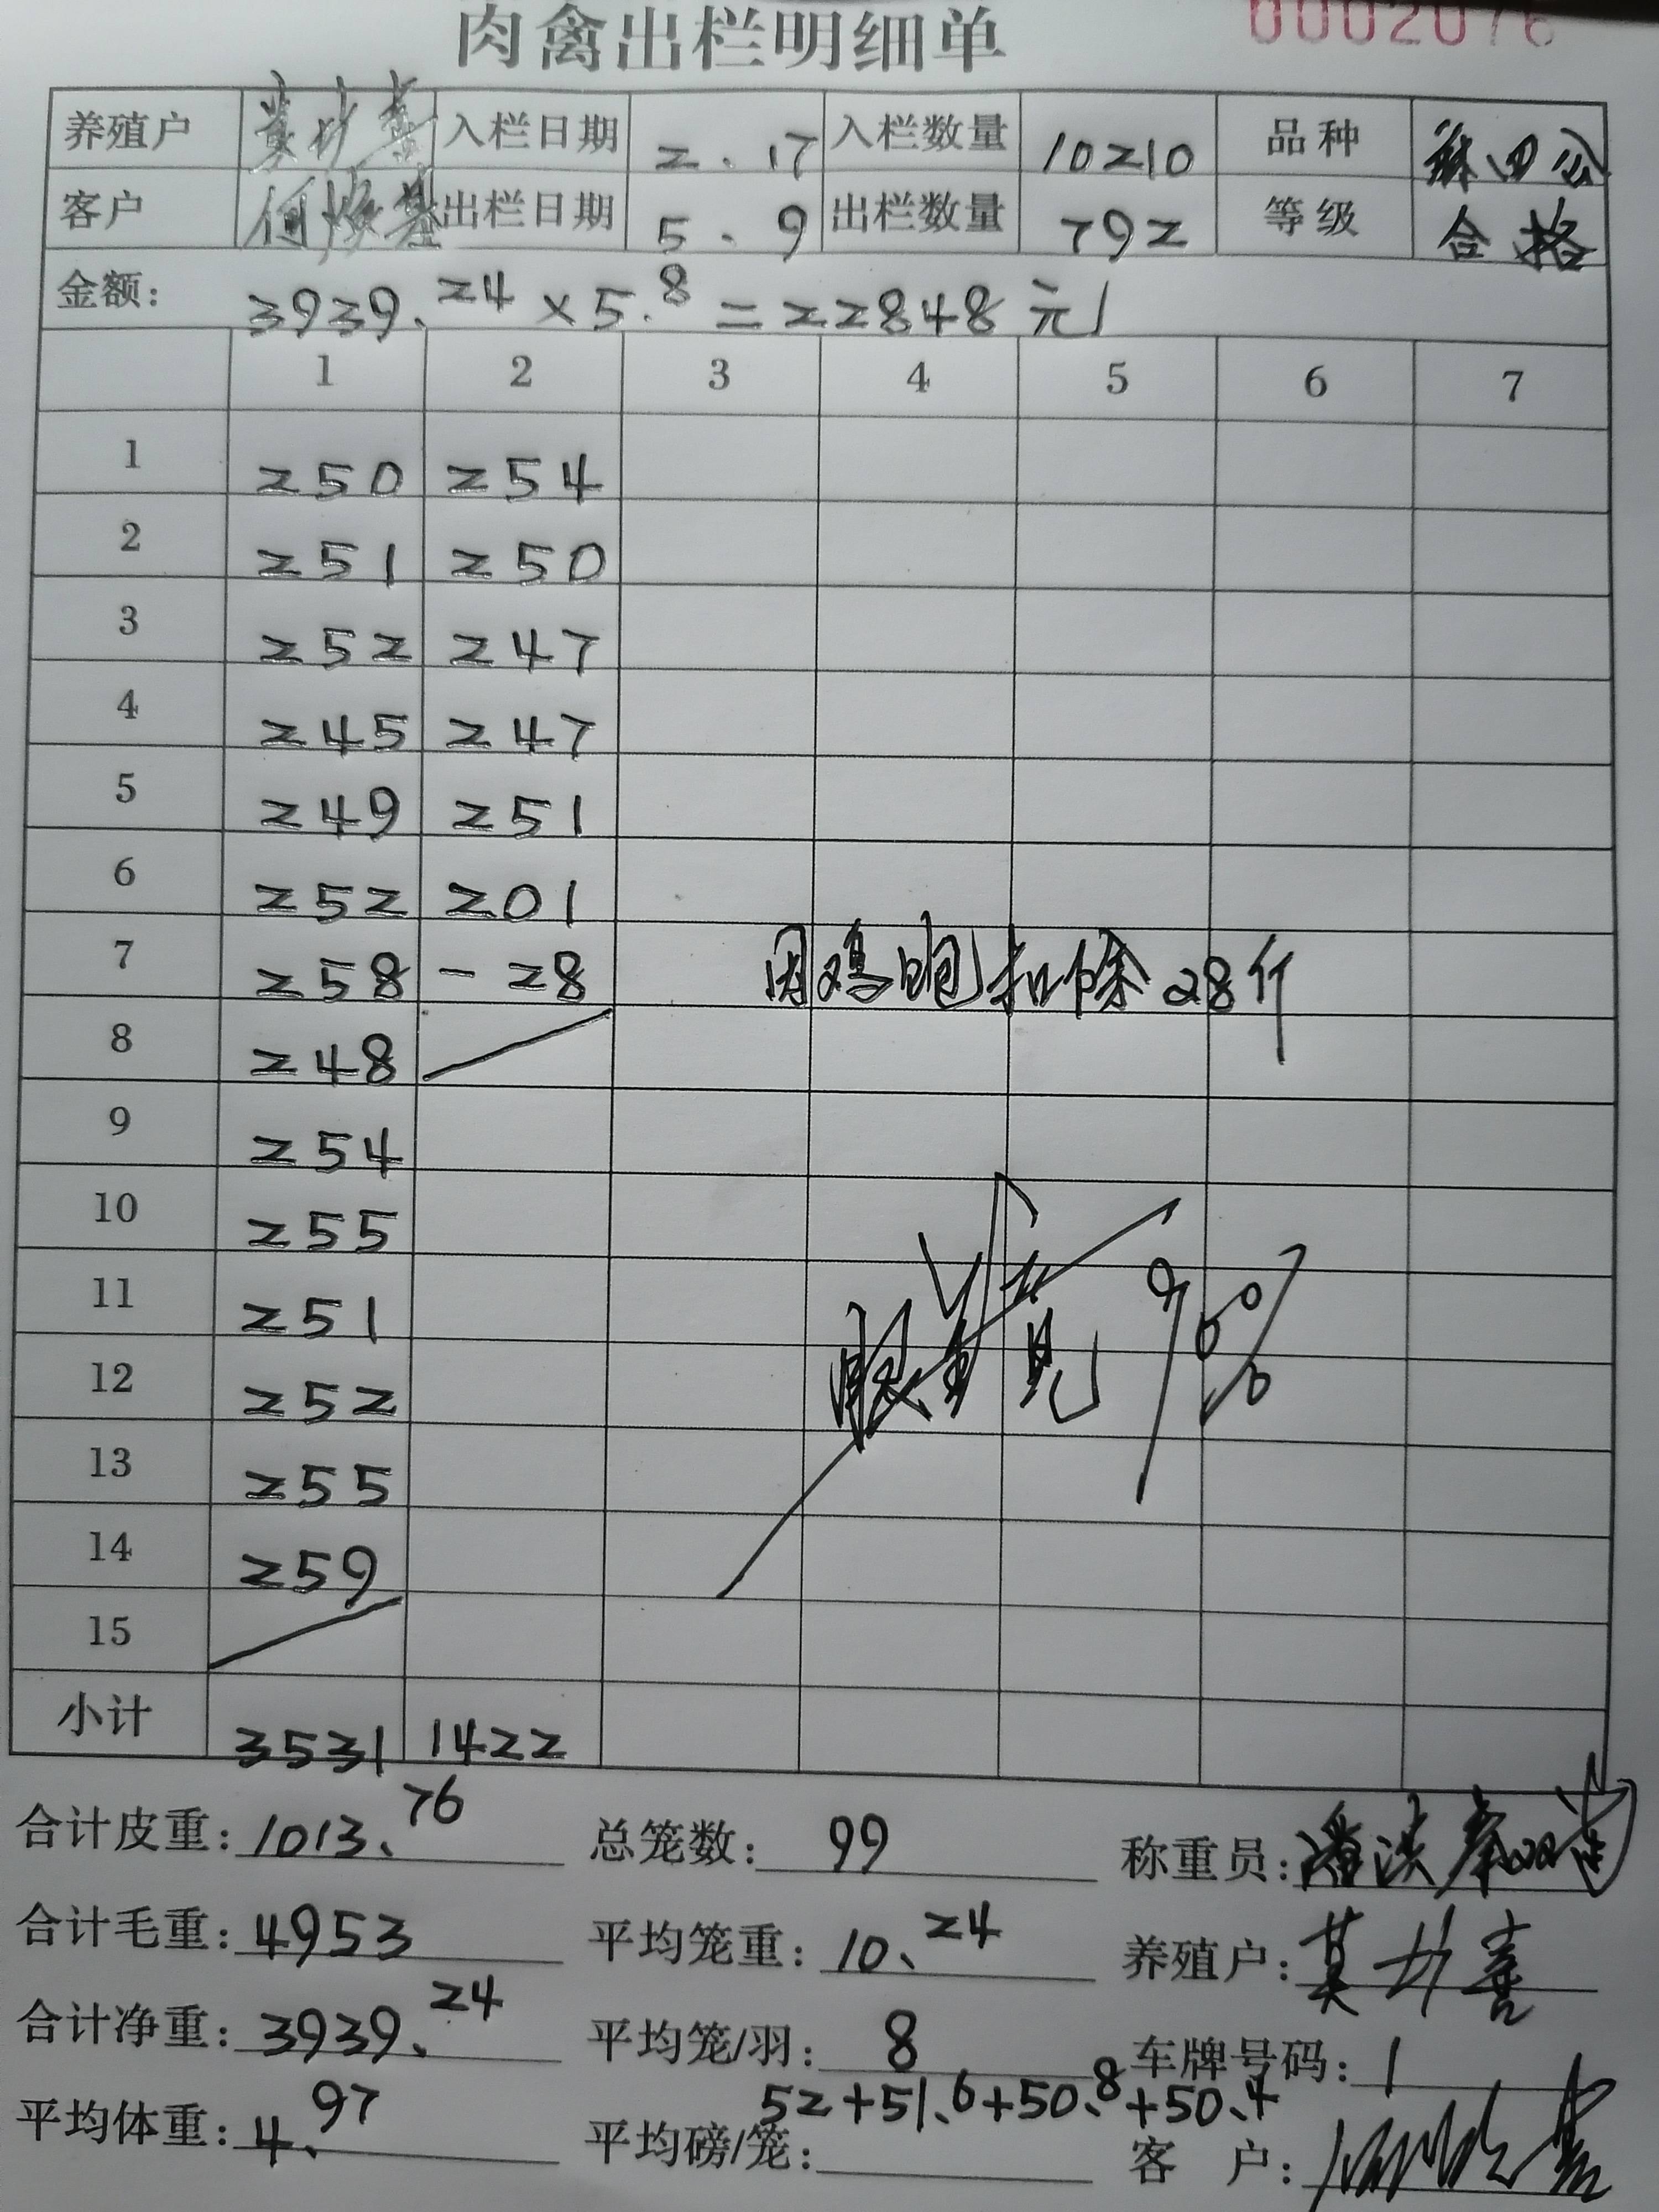 肉禽出栏明细单 0002076
养殖户 入栏日期 2.17 入栏数量 10210 品种 麻四公
客户 出栏日期 5.9 出栏数量 792 等级 合格
金额: 3939.24×5.8=22848元
1 2 3 4 5 6 7
1 250 254
2 251 250
3 252 247
4 245 247
5 249 251
6 252 201
7 258 -28 因鸡 扣除28斤
8 248
9 254
10 255
11 251
12 252
13 255
14 259
15
小计 3531 1422
合计皮重: 1013.76 总笼数: 99 称重员:
合计毛重: 4953 平均笼重: 10.24 养殖户: 莫 喜
合计净重: 3939.24 平均笼/羽: 8 车牌号码: 1
52+51.6+50.8+50.4
平均体重: 4.97 平均磅/笼: 客 户: